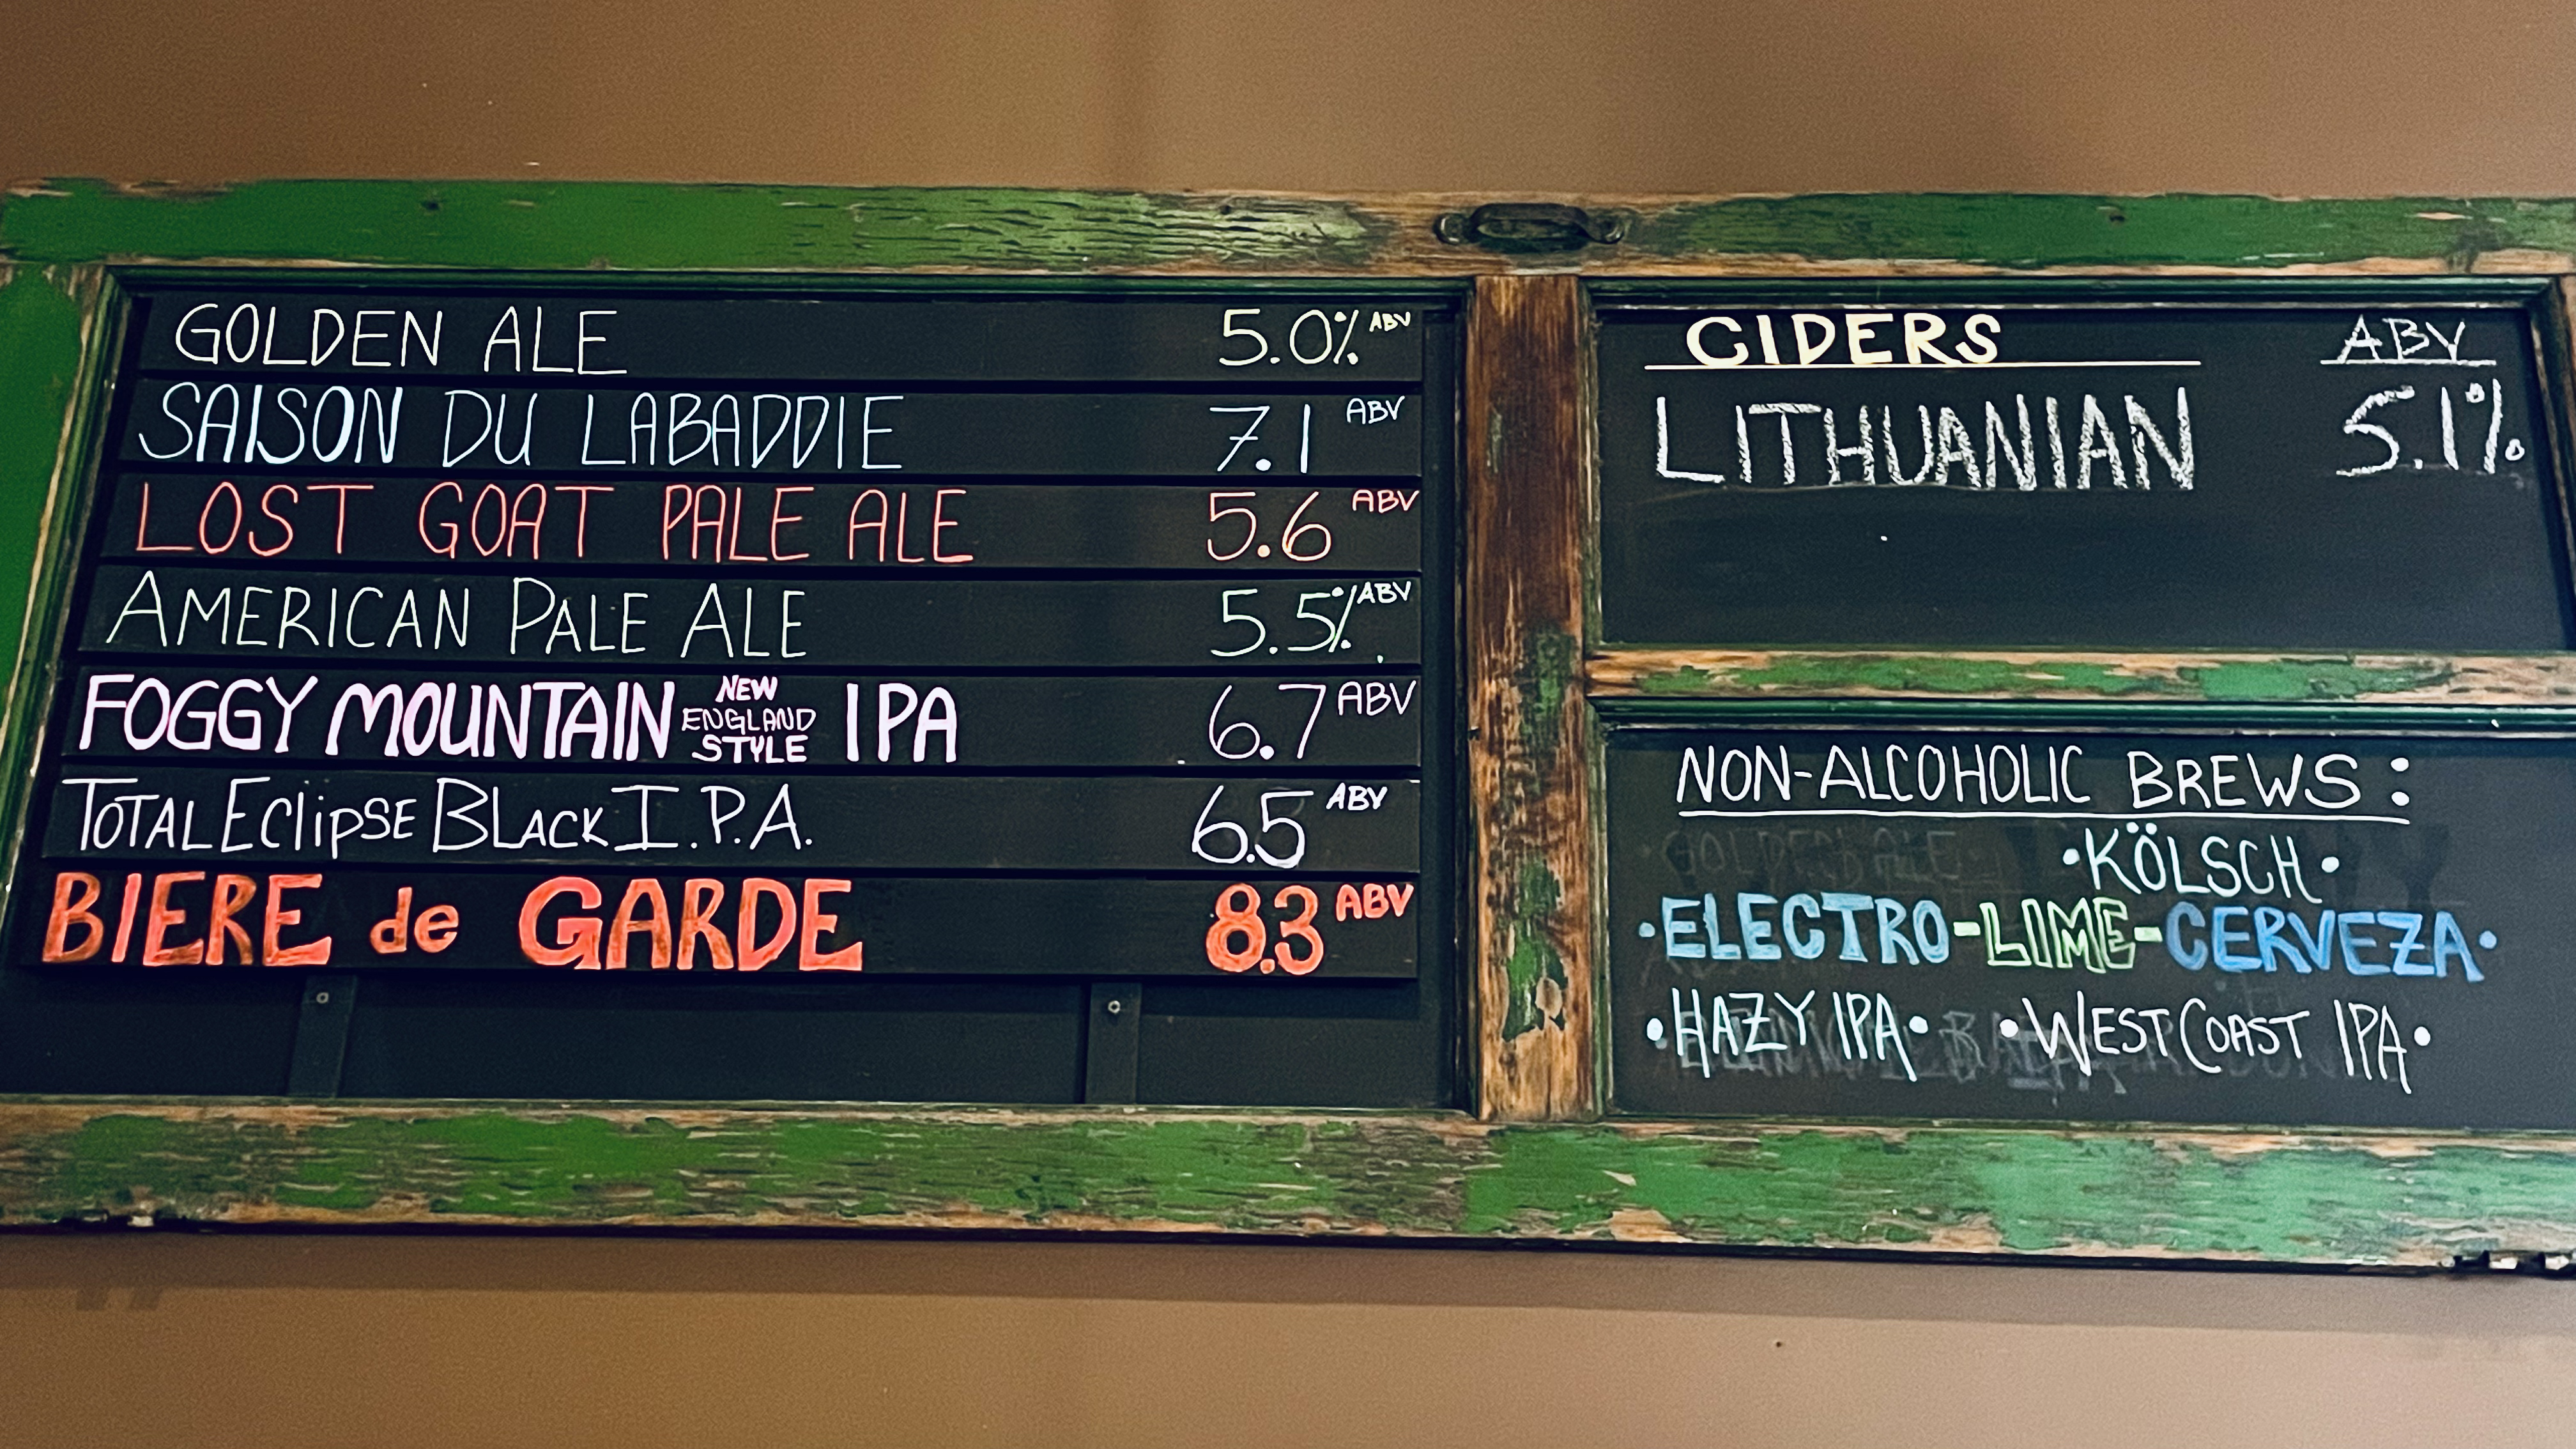 GOLDEN ALE 5.0% ABV
SAISON DU LABADDIE 7.1 ABV
LOST GOAT PALE ALE 5.6 ABV
AMERICAN PALE ALE 5.5% ABV
FOGGY MOUNTAIN NEW ENGLAND STYLE IPA 6.7 ABV
TOTAL EClipSE BLACK I.P.A. 6.5 ABV
BIERE de GARDE 8.3 ABV
CIDERS ABV
LITHUANIAN 5.1%
NON-ALCOHOLIC BREWS:
•KÖLSCH•
•ELECTRO-LIME-CERVEZA•
•HAZY IPA• •WEST COAST IPA•